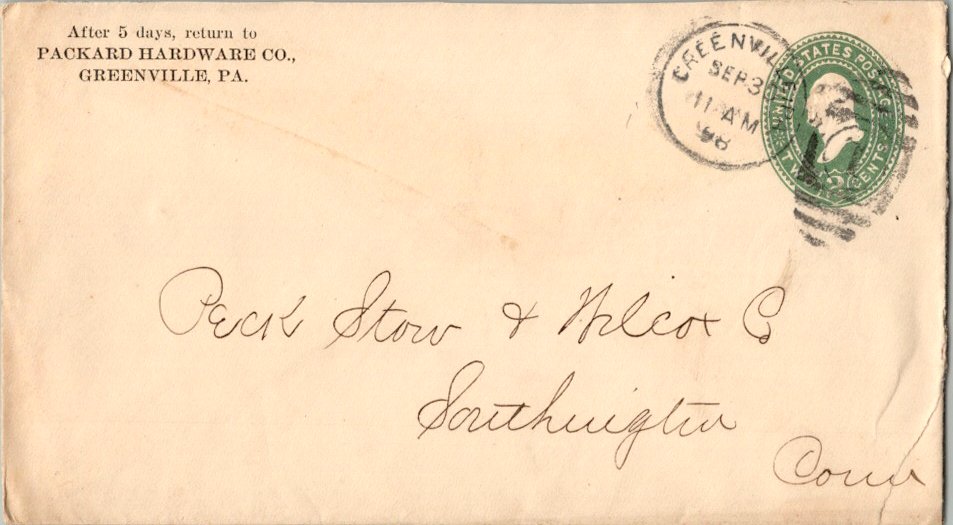 After 5 days, return to
PACKARD HARDWARE CO.,
GREENVILLE, PA.
GREENVILLE
SEP 3
11 AM
98
UNITED STATES POSTAGE
TWO 2 CENTS
Peck Stow & Wilcox Co
Southington
Conn